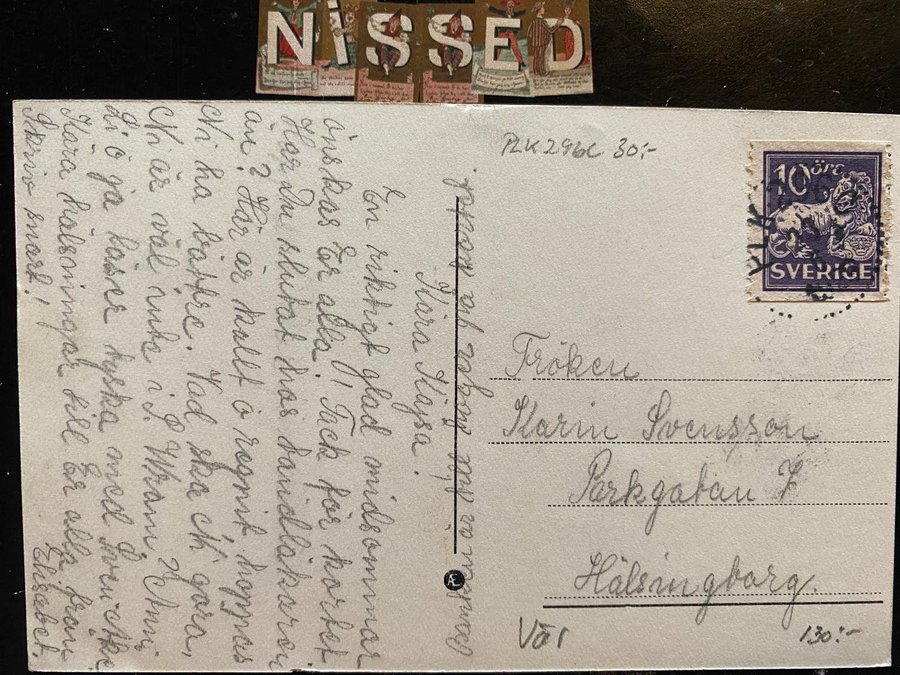 NISSED
PLK 296c 30:-
10 öre
SVERIGE
PLK
Kära Kajsa.
En riktigt glad midsommar
önskas Er alla. O! Tack för kortet
Har Du slutat hos tandläkaren
än? Här är kallt o regnit, hoppas
Ni ha bättre. Vad ska Ni göra,
Ni är väl inte i Wram?
o ja läser tyska med Sven-Åke
Kära hälsningar till Er alla från
Skriv snart! Elisabet.
Fröken
Karin Svensson
Parkgatan 7
Hälsingborg.
130:-